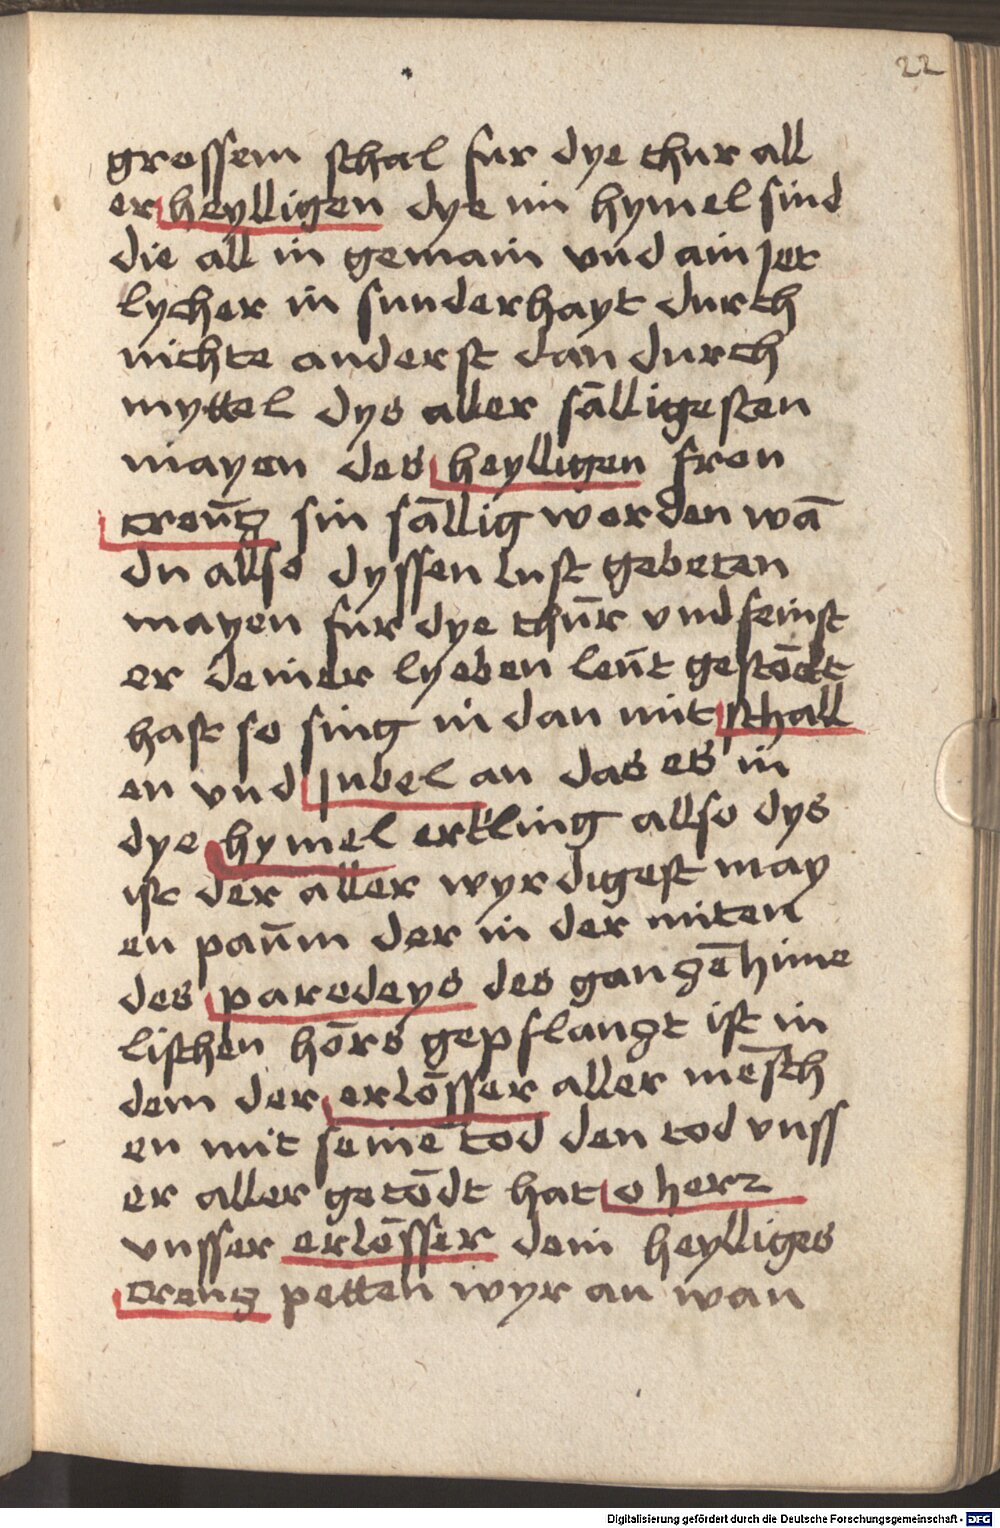 22
grossem schal fur dye thur all
er heylligen dye im hymel sind
die all in gemain vnd ain Jet
lycher in sunderhayt durch
nichte anderst dan durch
myttel dys aller sälligesten
mayen des heylligen fron
creūtz sin sällig worden wā
du allso dyssen lust gebeten
mayen fur dye thūr vnd feinst
er deiner lyeben leūt gestöckt
hast so sing in dan mit schall
en vnd Jubel an das es in
dye hymel erkling allso dys
ist der aller wyrdigest may
en paūm der in der miten
des paredeys des gantzē hime
lischen hörs gepflantzt ist in
dem der erlösser aller mēsch
en mit seinē tod den tod vnss
er aller getödt hat o herz
vnsser erlösser dein heylliges
creutz petten wyr an wan
Digitalisierung gefördert durch die Deutsche Forschungsgemeinschaft - DFG